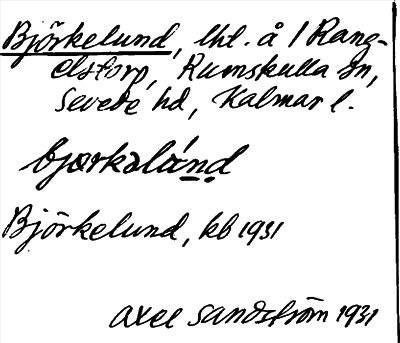 Björkelund, lhl. å 1 Rang-
elstorp, Rumskulla sn,
Sevede hd, Kalmar l.
bjœrkəlúnd
Björkelund, kb 1931
Axel Sandström 1931